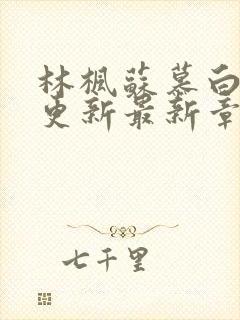 林枫蘇慕白
更新最新章
七千里